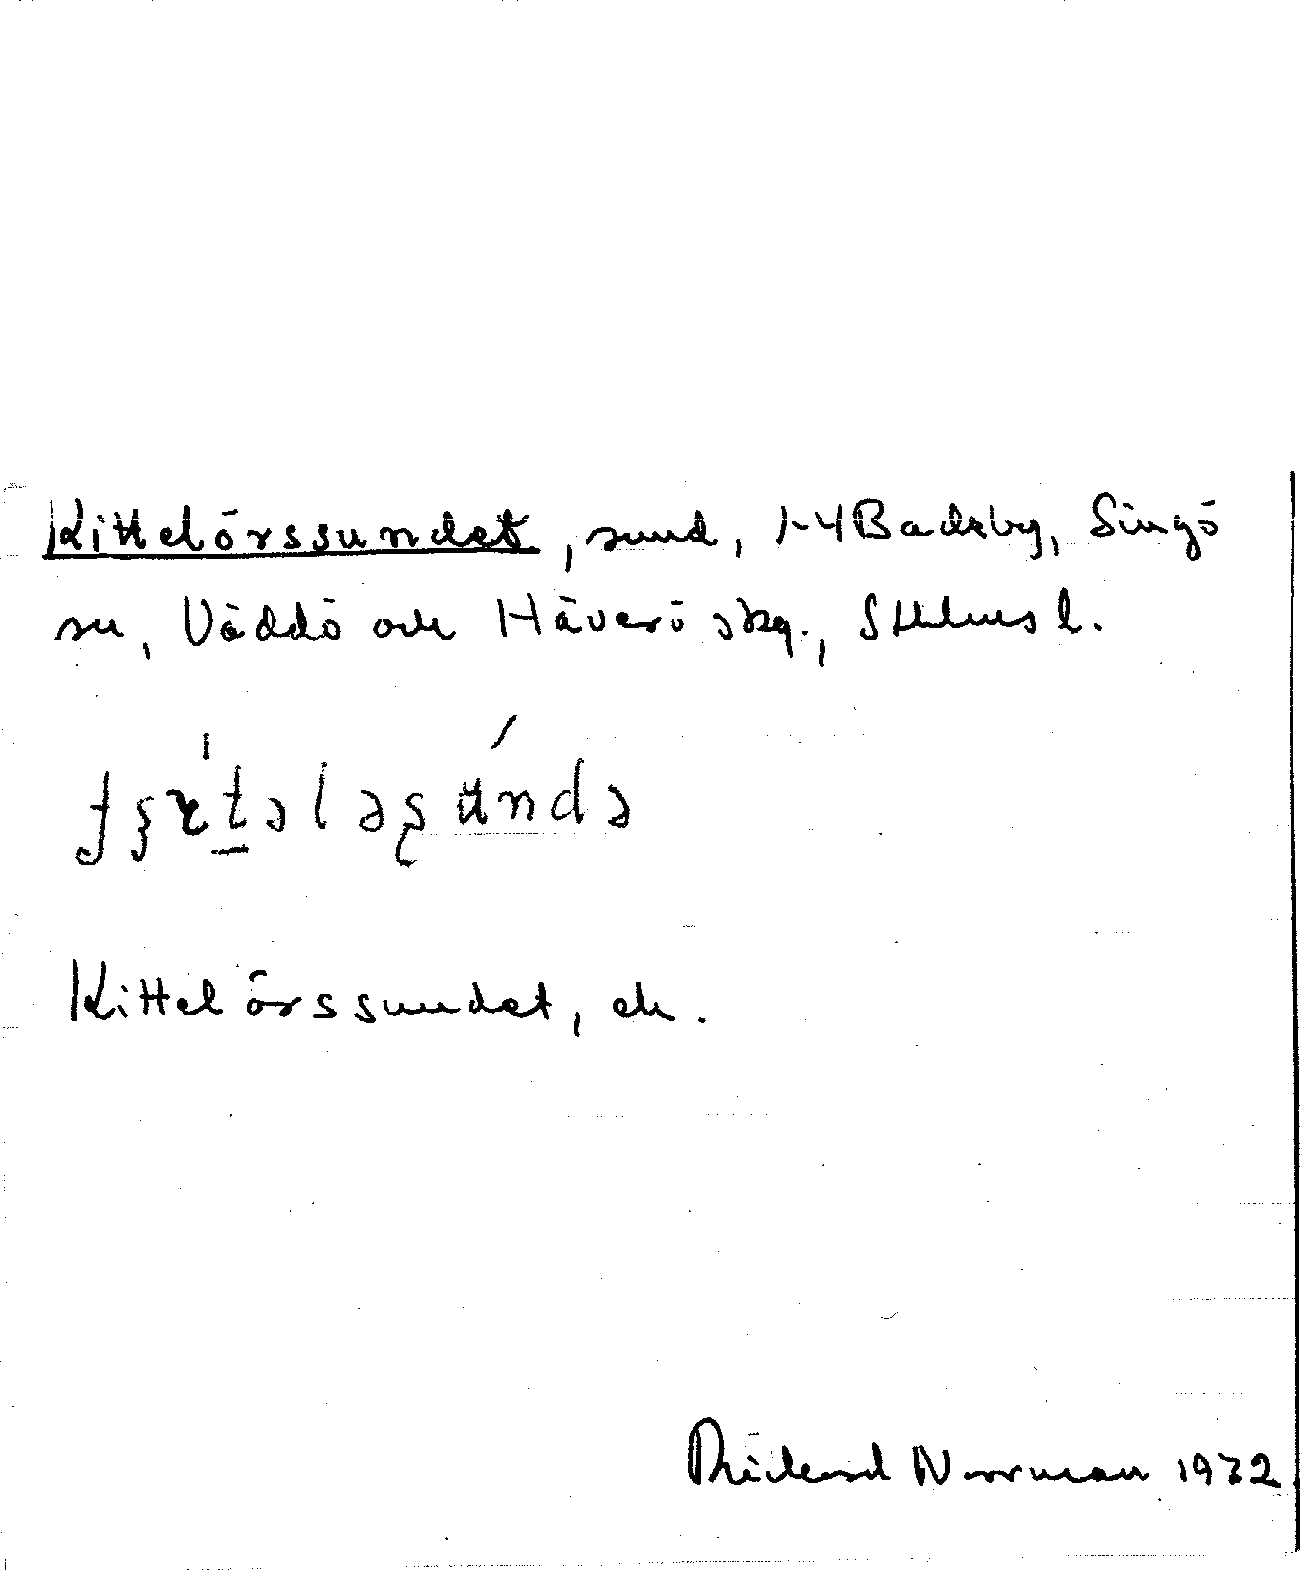 Kittelörssundet, sund, 1-4 Backby, Singö
sn, Väddö och Häverö skg., Sthlms l.
ʈʂɪ́tələʂʉ́ndə
Kittelörssundet, ek.
Rickard Norrman 1972